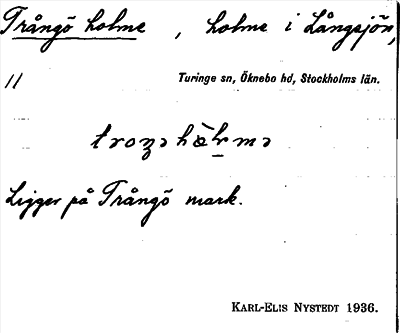 Trångö holme, holme i Långsjön,
11 Turinge sn, Öknebo hd, Stockholms län.
Ligger på Trångö mark.
KARL-ELIS NYSTEDT 1936.